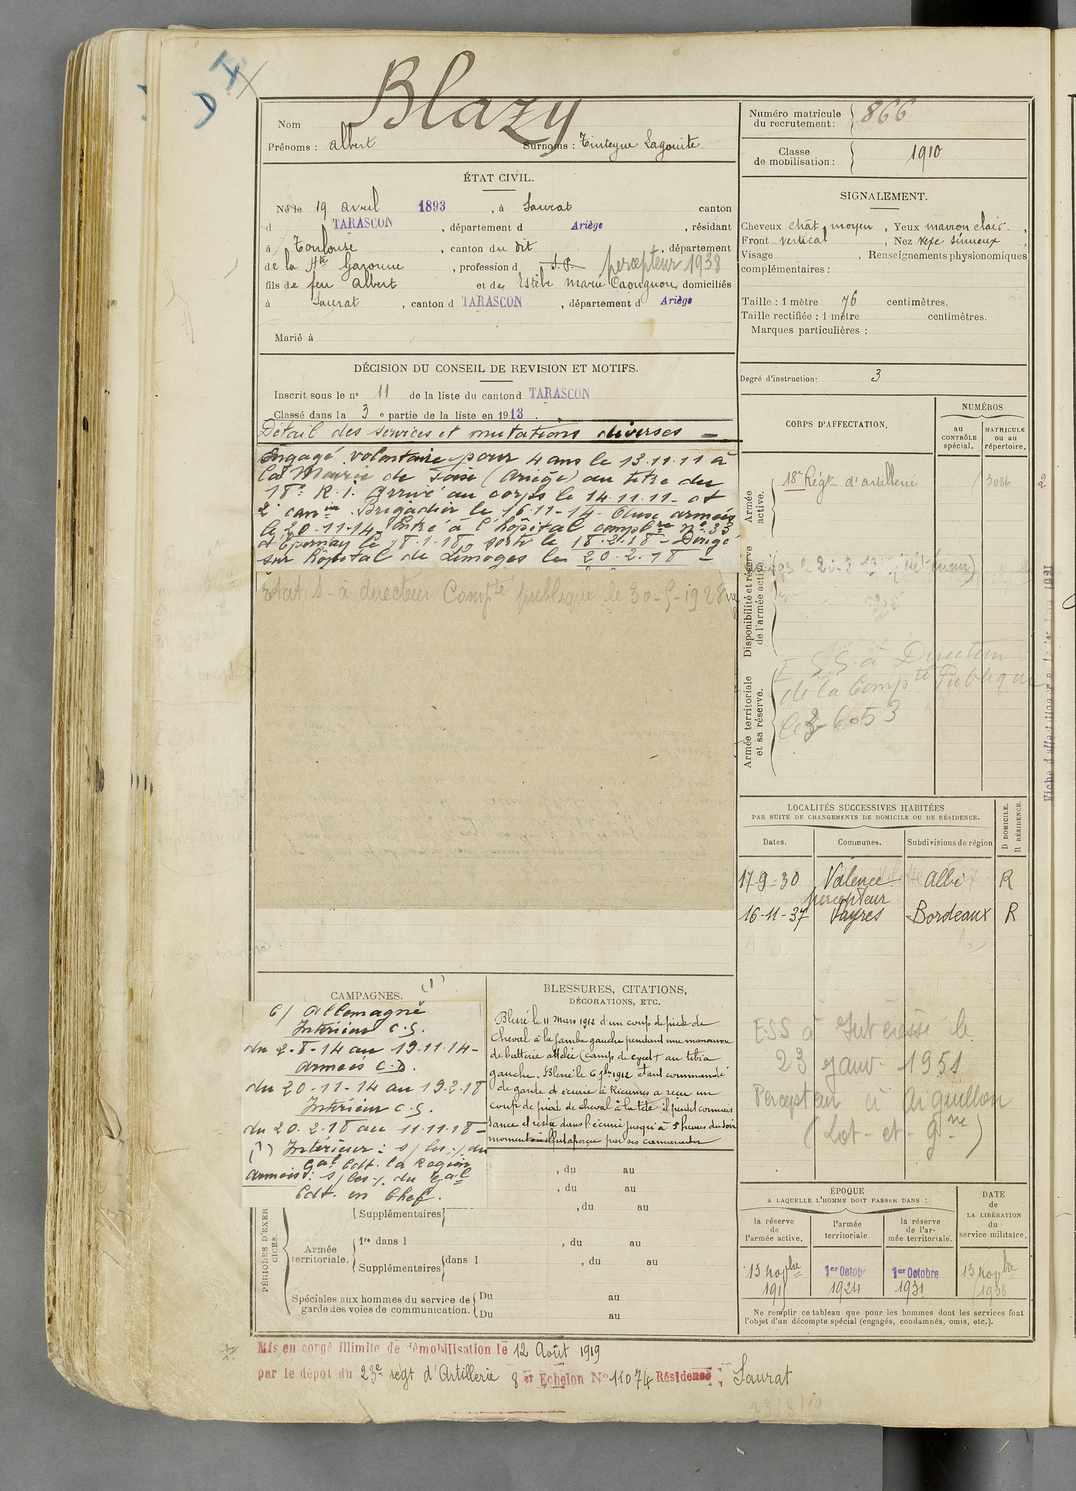 D I
Nom Blazy
Prénoms : Albert Surnoms :
ÉTAT CIVIL.
Né le 19 avril 1893, à Saurat canton
d TARASCON, département d Ariège, résidant
à Toulouse, canton du dit, département
de la Hte Garonne, profession d percepteur 1938
fils de feu Albert et de Estèbe Marie, domiciliés
à Saurat, canton d TARASCON, département d Ariège
Marié à
DÉCISION DU CONSEIL DE REVISION ET MOTIFS.
Inscrit sous le n° 11 de la liste du canton d TARASCON
Classé dans la 3 e partie de la liste en 1913.
Détail des services et mutations diverses
Engagé volontaire pour 4 ans le 13.11.11 à
la Mairie de Foix (Ariège) au titre du
18e R.A. Arrivé au corps le 14.11.11 et
2e canier. Brigadier le 16.11-14. Aux armées
le 20-11-14. Entré à l'hôpital complre n° 33
d'Epernay le 18.1.18, sorti le 18.2.18 - Dirigé
sur hôpital de Limoges le 20.2.18 -
Etat S. à directeur Compté publique le 30-5-1928
CAMPAGNES. (1)
C/ Allemagne
Intérieur C.S.
du 2-8-14 au 19.11.14-
armées C.D.
du 20-11-14 au 19.2.18
Intérieur C.S.
du 20.2.18 au 11.11.18-
(1) Intérieur : s/ les % du
Gal Cdt. la Région
armées : s/ les % du Gal
Cdt. en Chef.
BLESSURES, CITATIONS,
DÉCORATIONS, ETC.
Blessé le 11 Mars 1912 d'un coup de pied de
cheval à la jambe gauche pendant une manœuvre
de batterie attelée (camp de) au tibia
gauche. Blessé le 6 1912 étant commandé
de garde d'écurie à a reçu un
coup de pied de cheval à la tête, il perdit connais
sance et resta dans l'écurie jusqu'à 5 heures du soir
moment où il fut aperçu par ses camarades
, du au
, du au
PÉRIODES D'EXERCICES.
Supplémentaires , du au
Armée territoriale.
1re dans l , du au
Supplémentaires dans l , du au
Spéciales aux hommes du service de garde des voies de communication.
Du au
Du au
Mis en congé illimité de démobilisation le 12 Août 1919
par le dépôt du 23e régt d'Artillerie 8 er Echelon N° 11074 Résidence : Saurat
Numéro matricule du recrutement : 866
Classe de mobilisation : 1910
SIGNALEMENT.
Cheveux chât. moyen, Yeux marron clair.,
Front vertical, Nez vexe sinueux,
Visage , Renseignements physionomiques
complémentaires :
Taille : 1 mètre 76 centimètres.
Taille rectifiée : 1 mètre centimètres.
Marques particulières :
Degré d'instruction : 3
CORPS D'AFFECTATION.
NUMÉROS
au CONTRÔLE spécial.
MATRICULE ou au répertoire.
Armée active.
18e Régt d'artillerie 3086
Disponibilité et réserve de l'armée active.
Armée territoriale et sa réserve.
E S.S. à Direction
de la Compté Publique
le 2-6-53
LOCALITÉS SUCCESSIVES HABITÉES
PAR SUITE DE CHANGEMENTS DE DOMICILE OU DE RÉSIDENCE.
Dates. Communes. Subdivisions de région D DOMICILE. R RÉSIDENCE.
17-9-30 Valence Albi R
percepteur
16-11-37 Vayres Bordeaux R
ESS à Intéressé le
23 Janv. 1951
Percepteur à Aiguillon
(Lot-et-Gne)
ÉPOQUE
A LAQUELLE L'HOMME DOIT PASSER DANS :
DATE DE LA LIBÉRATION du service militaire.
la réserve de l'armée active.
l'armée territoriale.
la réserve de l'armée territoriale.
13 novbre 191 1er Octobr 1924 1er Octobre 1931 13 novbre 1938
Ne remplir ce tableau que pour les hommes dont les services font
l'objet d'un décompte spécial (engagés, condamnés, omis, etc.).